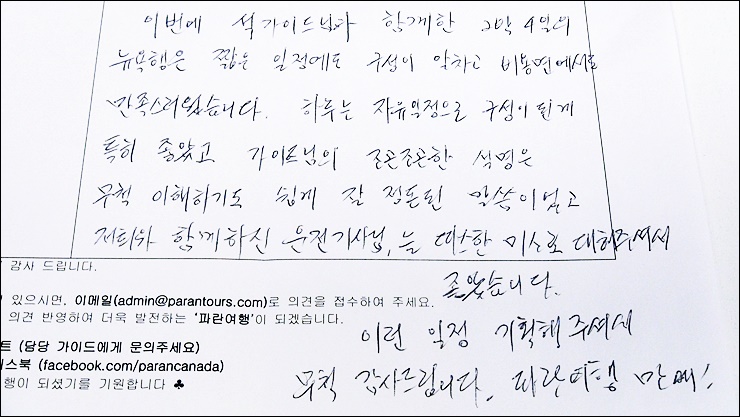 이번에 석가이드님과 함께한 3박 4일의
뉴욕행은 짧은 일정에도 구성이 알차고 비용면에서도
만족스러웠습니다. 하루는 자유일정으로 구성이 된게
특히 좋았고 가이드님의 조곤조곤한 설명은
무척 이해하기도 쉽게 잘 정돈된 말씀이었고
저희와 함께하신 운전기사님, 늘 따스한 미소로 대해주셔서
좋았습니다.
이런 일정 기획해주셔서
무척 감사드립니다. 파란여행 만세!
감사 드립니다.
있으시면, 이메일(admin@parantours.com)로 의견을 접수하여 주세요.
의견 반영하여 더욱 발전하는 '파란여행'이 되겠습니다.
트 (담당 가이드에게 문의주세요)
스북 (facebook.com/parancanada)
행이 되셨기를 기원합니다 ♣